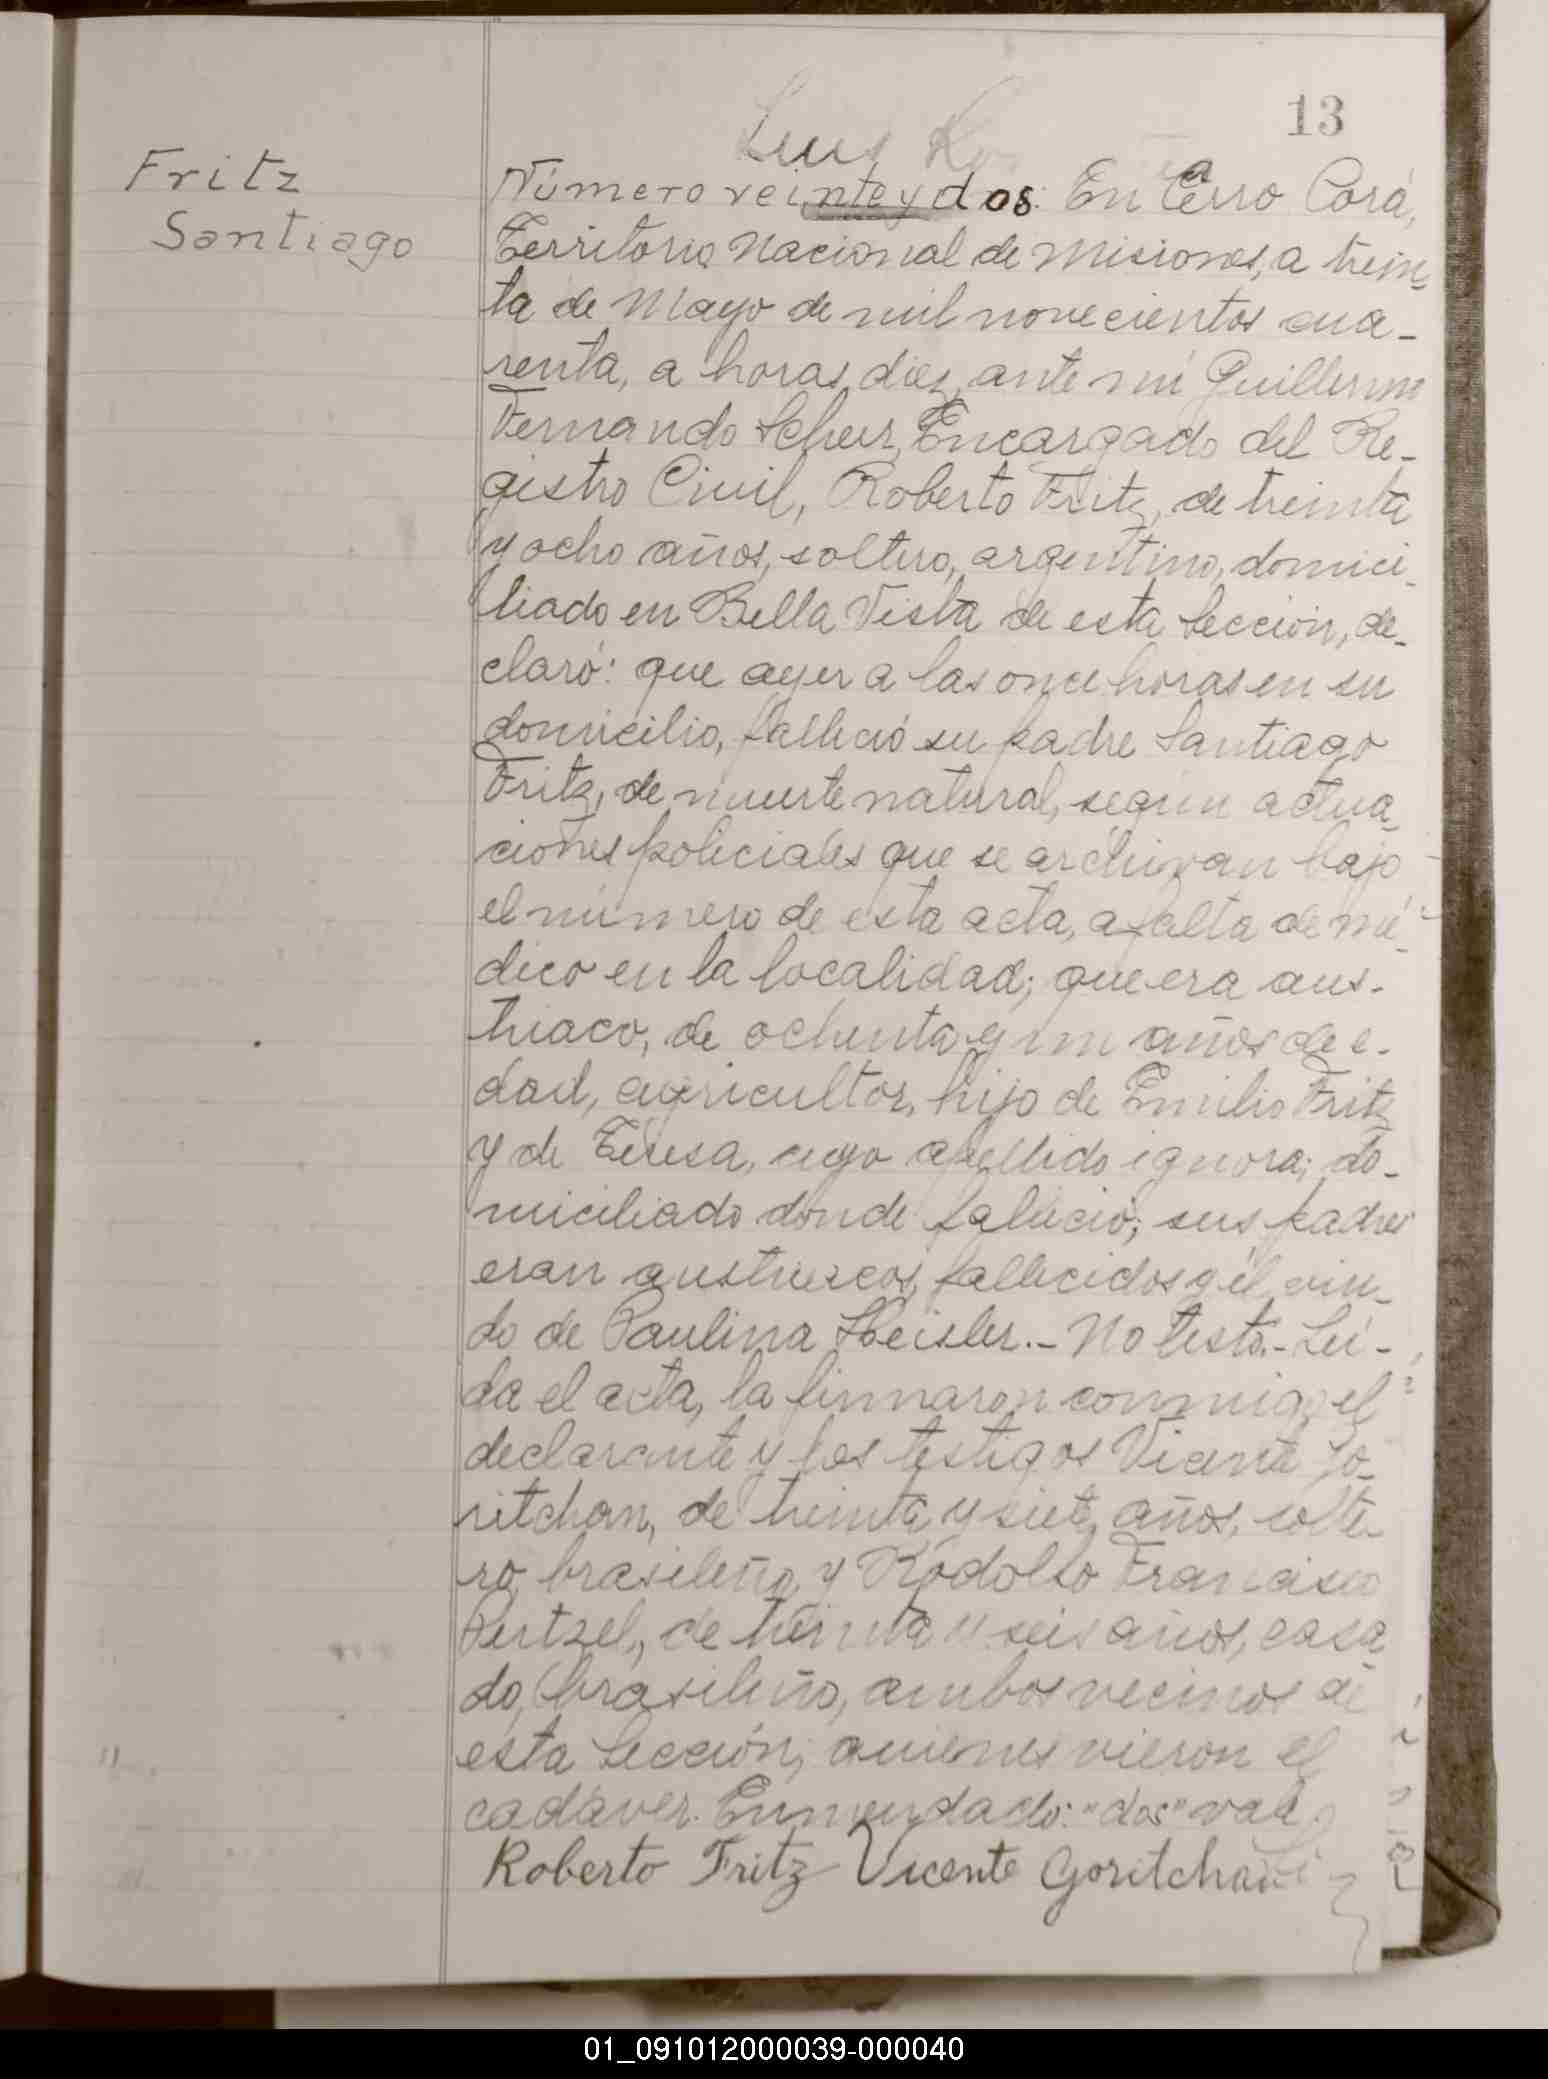 13
Luis
Fritz
Santiago
Número veinte y dos: En Cerro Corá,
Territorio Nacional de Misiones, a trein-
ta de Mayo de mil novecientos cua-
renta, a horas diez, ante mí Guillermo
Fernando Scheer, Encargado del Re-
gistro Civil, Roberto Fritz, de treinta
y ocho años, soltero, argentino, domici-
liado en Bella Vista de esta Sección, de-
claró: que ayer a las once horas en su
domicilio, falleció su padre Santiago
Fritz, de muerte natural, según actua-
ciones policiales que se archivan bajo
el número de esta acta, a falta de mé-
dico en la localidad; que era aus-
triaco, de ochenta y un años de e-
dad, agricultor, hijo de Emilio Fritz
y de Teresa, cuyo apellido ignora; do-
miciliado donde falleció; sus padres
eran austriacos, fallecidos y él viu-
do de Paulina Heisler.- No testó.- Leí-
da el acta, la firmaron conmigo el
declarante y los testigos Vicente Go-
ritchan, de treinta y siete años, solte-
ro, brasileño y Rodolfo Francisco
Pertzel, de treinta y seis años, casa
do, brasileño, ambos vecinos de
esta Sección; quienes vieron el
cadáver. Enmendado: "dos" vale
Roberto Fritz Vicente Goritchan
01_091012000039-000040